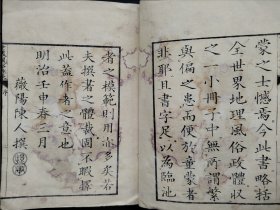 蒙之士憾焉今此書略括
全世界地理風俗政體収
之一小冊子中無所謂繁
與偏之患而便於童蒙者
非耶且書字足以為臨池
者之模範則用亦多矣若
夫撰者之體裁固不暇擇
此蓋作者之意也
明治壬申春三月
薇陽陳人撰